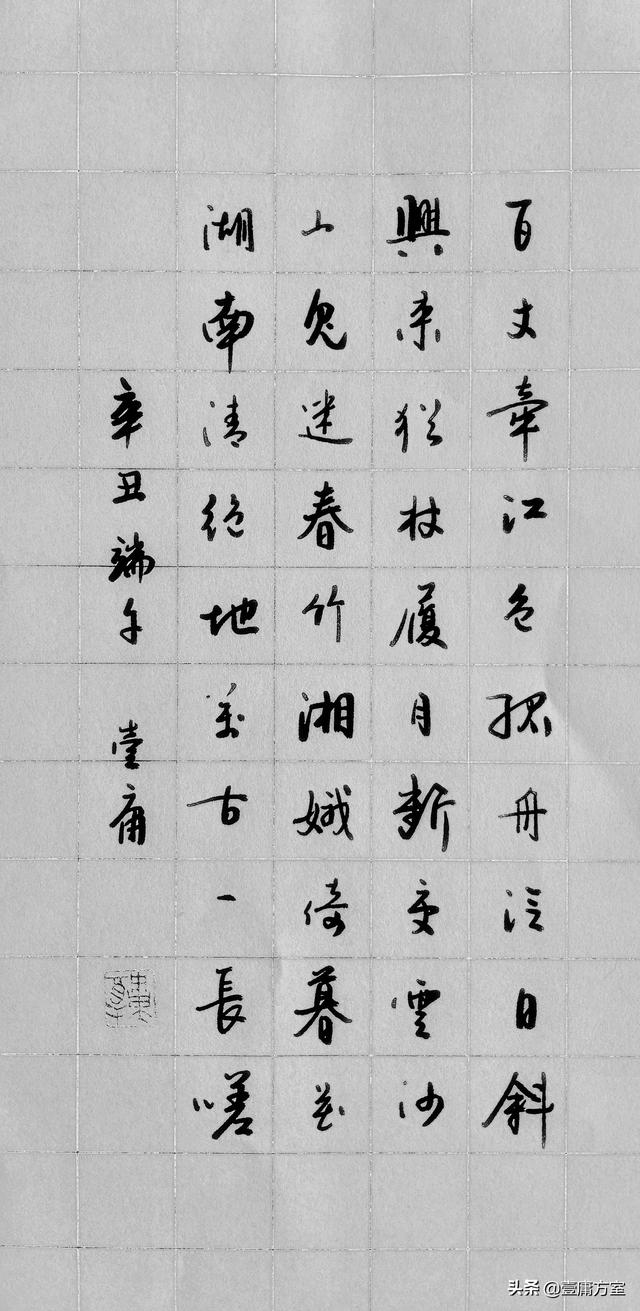 百丈牽江色孤舟泛日斜
興來猶杖履目斷更雲沙
山鬼迷春竹湘娥倚暮花
湖南清絕地萬古一長嗟
辛丑端午 壹庸
头条 @壹庸方室